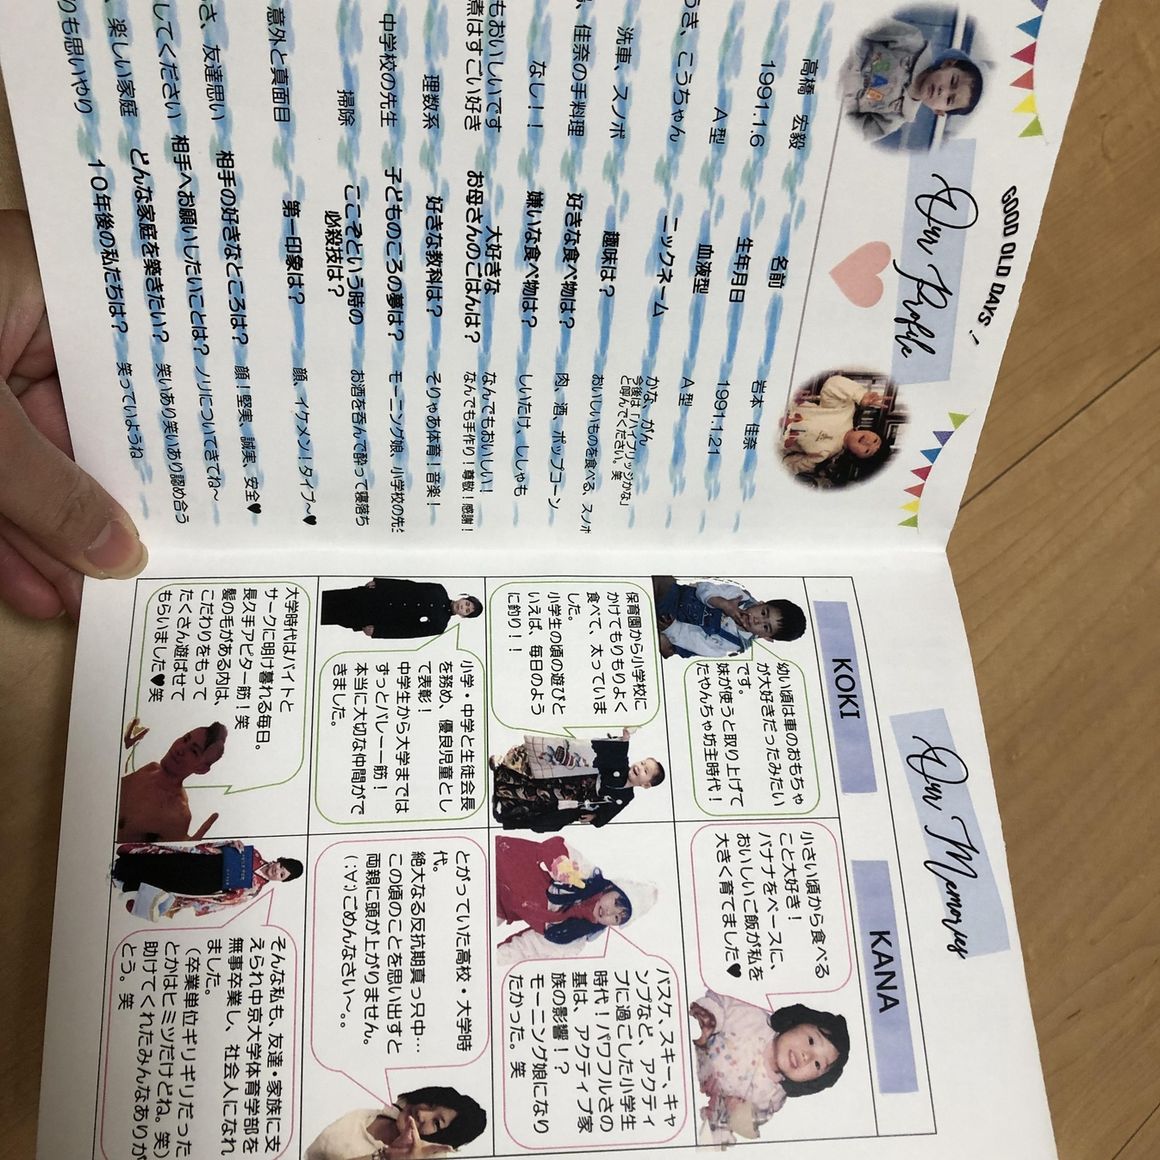 GOOD OLD DAYS！
Our Profile
高橋 宏毅
名前
岩本 佳奈
1991.1.6
生年月日
1991.1.21
A型
血液型
A型
こうちゃん
ニックネーム
かな、がん
今後は「ハイブリッジかな」
と呼んでください。笑
洗車、スノボ
趣味は？
おいしいものを食べる、スノボ
佳奈の手料理
好きな食べ物は？
肉、酒、ポップコーン
なし！！
嫌いな食べ物は？
しいたけ、ししゃも
もおいしいです
煮はすごい好き
大好きな
お母さんのごはんは？
なんでもおいしい！
なんでも手作り！尊敬！感謝！
理数系
好きな教科は？
そりゃあ体育！音楽！
中学校の先生
子どものころの夢は？
モーニング娘、小学校の先生
掃除
ここぞという時の
必殺技は？
お酒を呑んで酔って寝落ち
意外と真面目
第一印象は？
顔、イケメン！タイプ〜♥
さ、友達思い
相手の好きなところは？
顔！堅実、誠実、安全♥
してください
相手へお願いしたいことは？
ノリについてきてね〜
楽しい家庭
どんな家庭を築きたい？
笑いあり笑いあり認め合う
りも思いやり
10年後の私たちは？
笑っていようね
Our Memories
KOKI
KANA
幼い頃は車のおもちゃ
が大好きだったみたい
です。
妹が使うと取り上げて
たやんちゃ坊主時代！
小さい頃から食べる
こと大好き！
バナナをベースに、
おいしいご飯が私を
大きく育てました♥
保育園から小学校に
かけてもりもりよく
食べて、太っていま
した。
小学生の頃の遊びと
いえば、毎日のよう
に釣り！！
バスケ、スキー、キャ
ンプなど、アクティ
ブに過ごした小学生
時代！パワフルさの
基は、アクティブ家
族の影響！？
モーニング娘になり
たかった。笑
小学・中学と生徒会長
を務め、優良児童とし
て表彰！
中学生から大学までは
ずっとバレー一筋！
本当に大切な仲間がで
きました。
とがっていた高校・大学時
代。
絶大なる反抗期真っ只中…
この頃のことを思い出すと
両親に頭が上がりません。
(；∀；)ごめんなさい〜。。
大学時代はバイトと
サークに明け暮れる毎日。
長久手アピター筋！笑
髪の毛がある内は、
こだわりをもって
たくさん遊ばせて
もらいました♥笑
そんな私も、友達・家族に支
えられ中京大学体育学部を
無事卒業し、社会人になれ
ました。
（卒業単位ギリギリだった
とかはヒミツだけどね。笑）
助けてくれたみんなありが
とう。笑